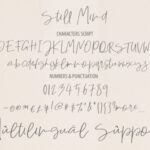 Still Mind
CHARACTERS SCRIPT
ABCDEFGHIJKLMNOPQRSTUVWXYZ
abcdefghijklmnopqrstuvwxyz
NUMBERS & PUNCTUATION
0123456789
Multilingual Support